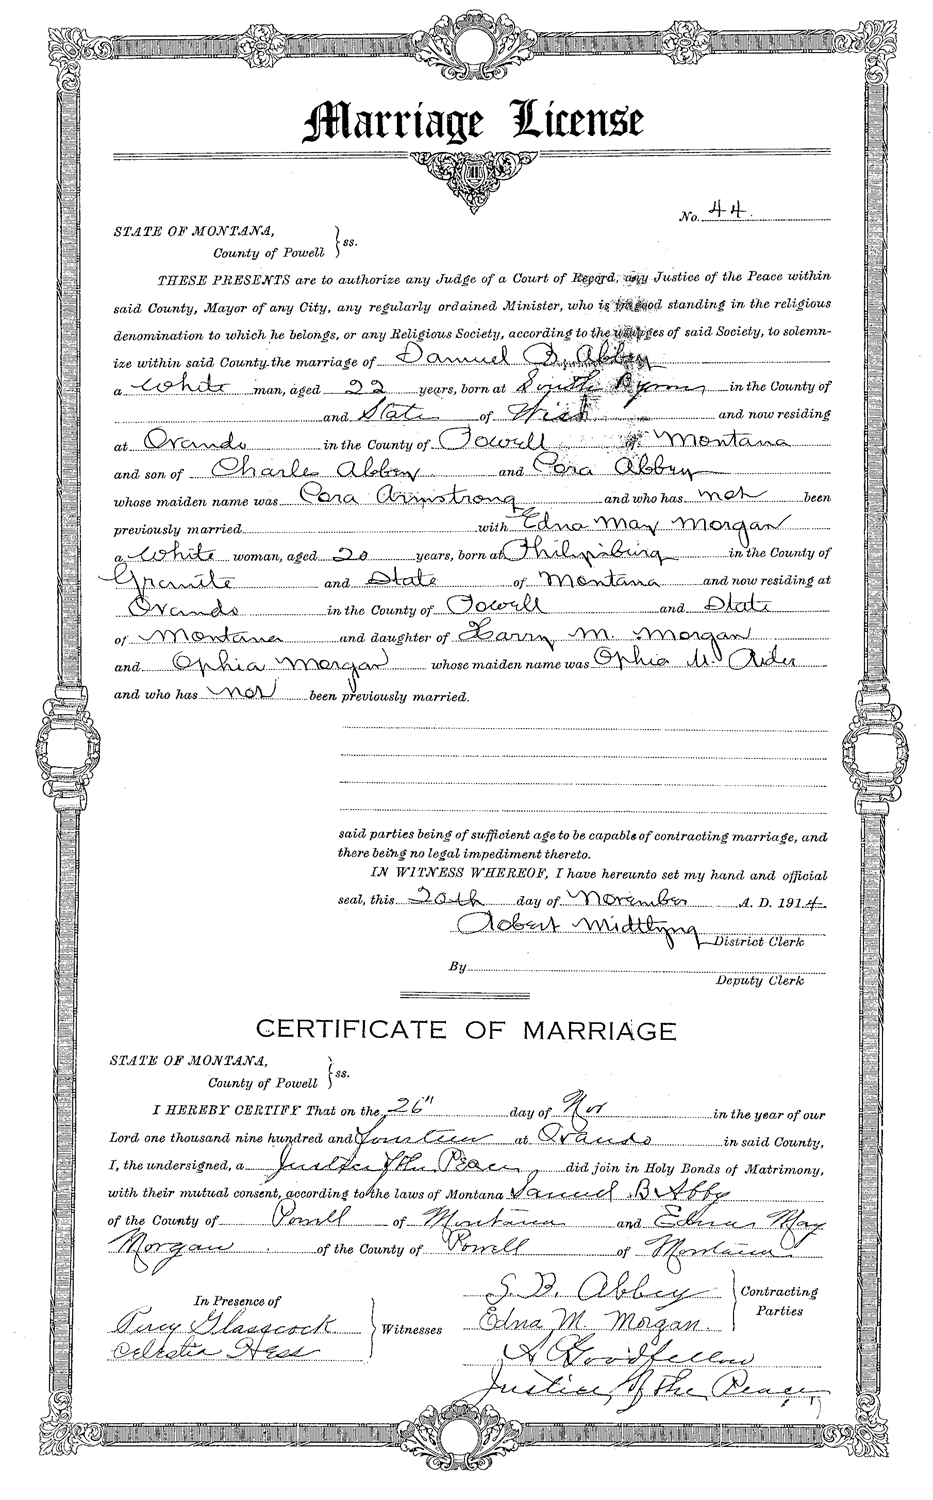 Marriage License
No. 44.
STATE OF MONTANA,
County of Powell } ss.
THESE PRESENTS are to authorize any Judge of a Court of Record, any Justice of the Peace within
said County, Mayor of any City, any regularly ordained Minister, who is in good standing in the religious
denomination to which he belongs, or any Religious Society, according to the usages of said Society, to solemn-
ize within said County the marriage of Samuel B. Abbey
a White man, aged 22 years, born at South Byron in the County of
and State of Wis and now residing
at Ovando in the County of Powell of Montana
and son of Charles Abbey and Cora Abbey
whose maiden name was Cora Armstrong and who has not been
previously married with Edna May Morgan
a White woman, aged 20 years, born at Philipsburg in the County of
Granite and State of Montana and now residing at
Ovando in the County of Powell and State
of Montana and daughter of Harry M. Morgan
and Ophia Morgan whose maiden name was Ophia M.
and who has not been previously married.
said parties being of sufficient age to be capable of contracting marriage, and
there being no legal impediment thereto.
IN WITNESS WHEREOF, I have hereunto set my hand and official
seal, this 20th day of November A. D. 1914.
Robert Midtlyng
District Clerk
By
Deputy Clerk
CERTIFICATE OF MARRIAGE
STATE OF MONTANA,
County of Powell } ss.
I HEREBY CERTIFY That on the 26" day of Nov in the year of our
Lord one thousand nine hundred and fourteen at Ovando in said County,
I, the undersigned, a Justice of the Peace did join in Holy Bonds of Matrimony,
with their mutual consent, according to the laws of Montana Samuel B Abby
of the County of Powell of Montana and Edna May
Morgan of the County of Powell of Montana
S. B. Abbey
Edna M. Morgan. } Contracting Parties
In Presence of
Percy Glasscock
Celestia Hess } Witnesses
A Goodfellow
Justice of the Peace